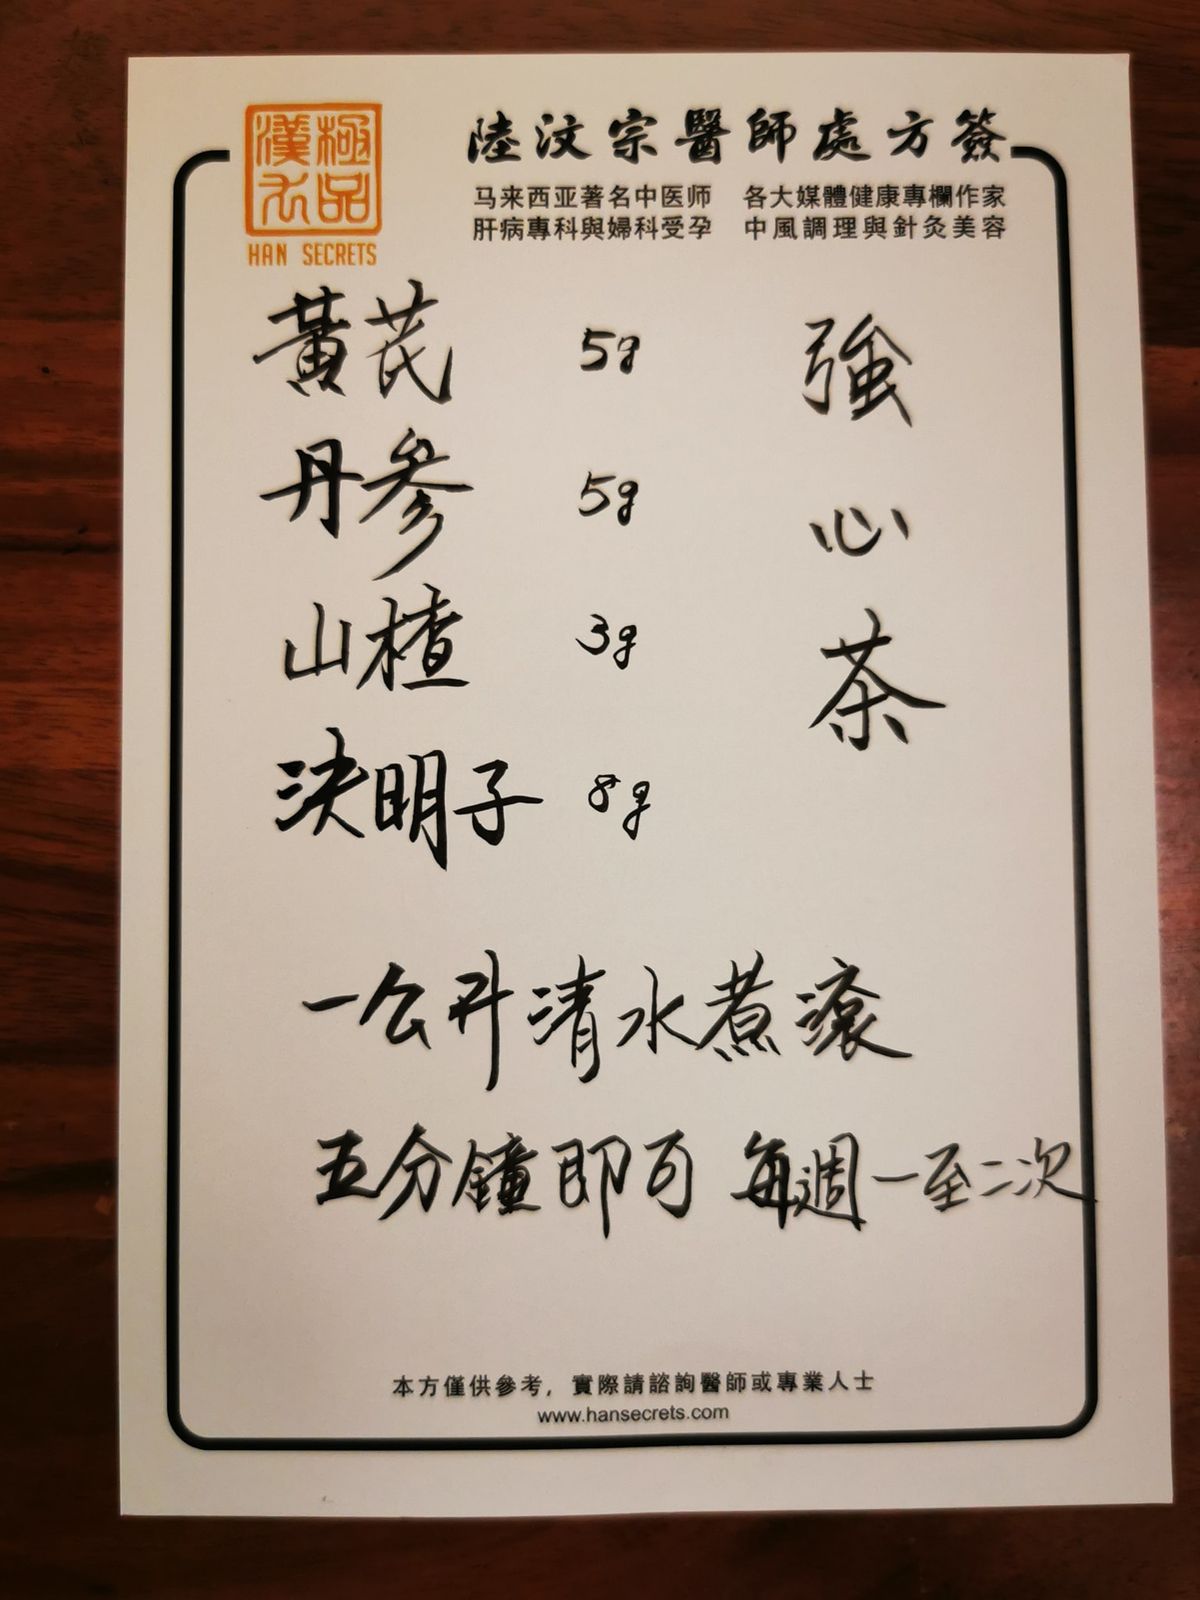 極品漢方
HAN SECRETS
陸汶宗醫師處方簽
马来西亚著名中医师 各大媒體健康專欄作家
肝病專科與婦科受孕 中風調理與針灸美容
強心茶
黃芪 5g
丹參 5g
山楂 3g
決明子 8g
一公升清水煮滾
五分鐘即可 每週一至二次
本方僅供參考，實際請諮詢醫師或專業人士
www.hansecrets.com